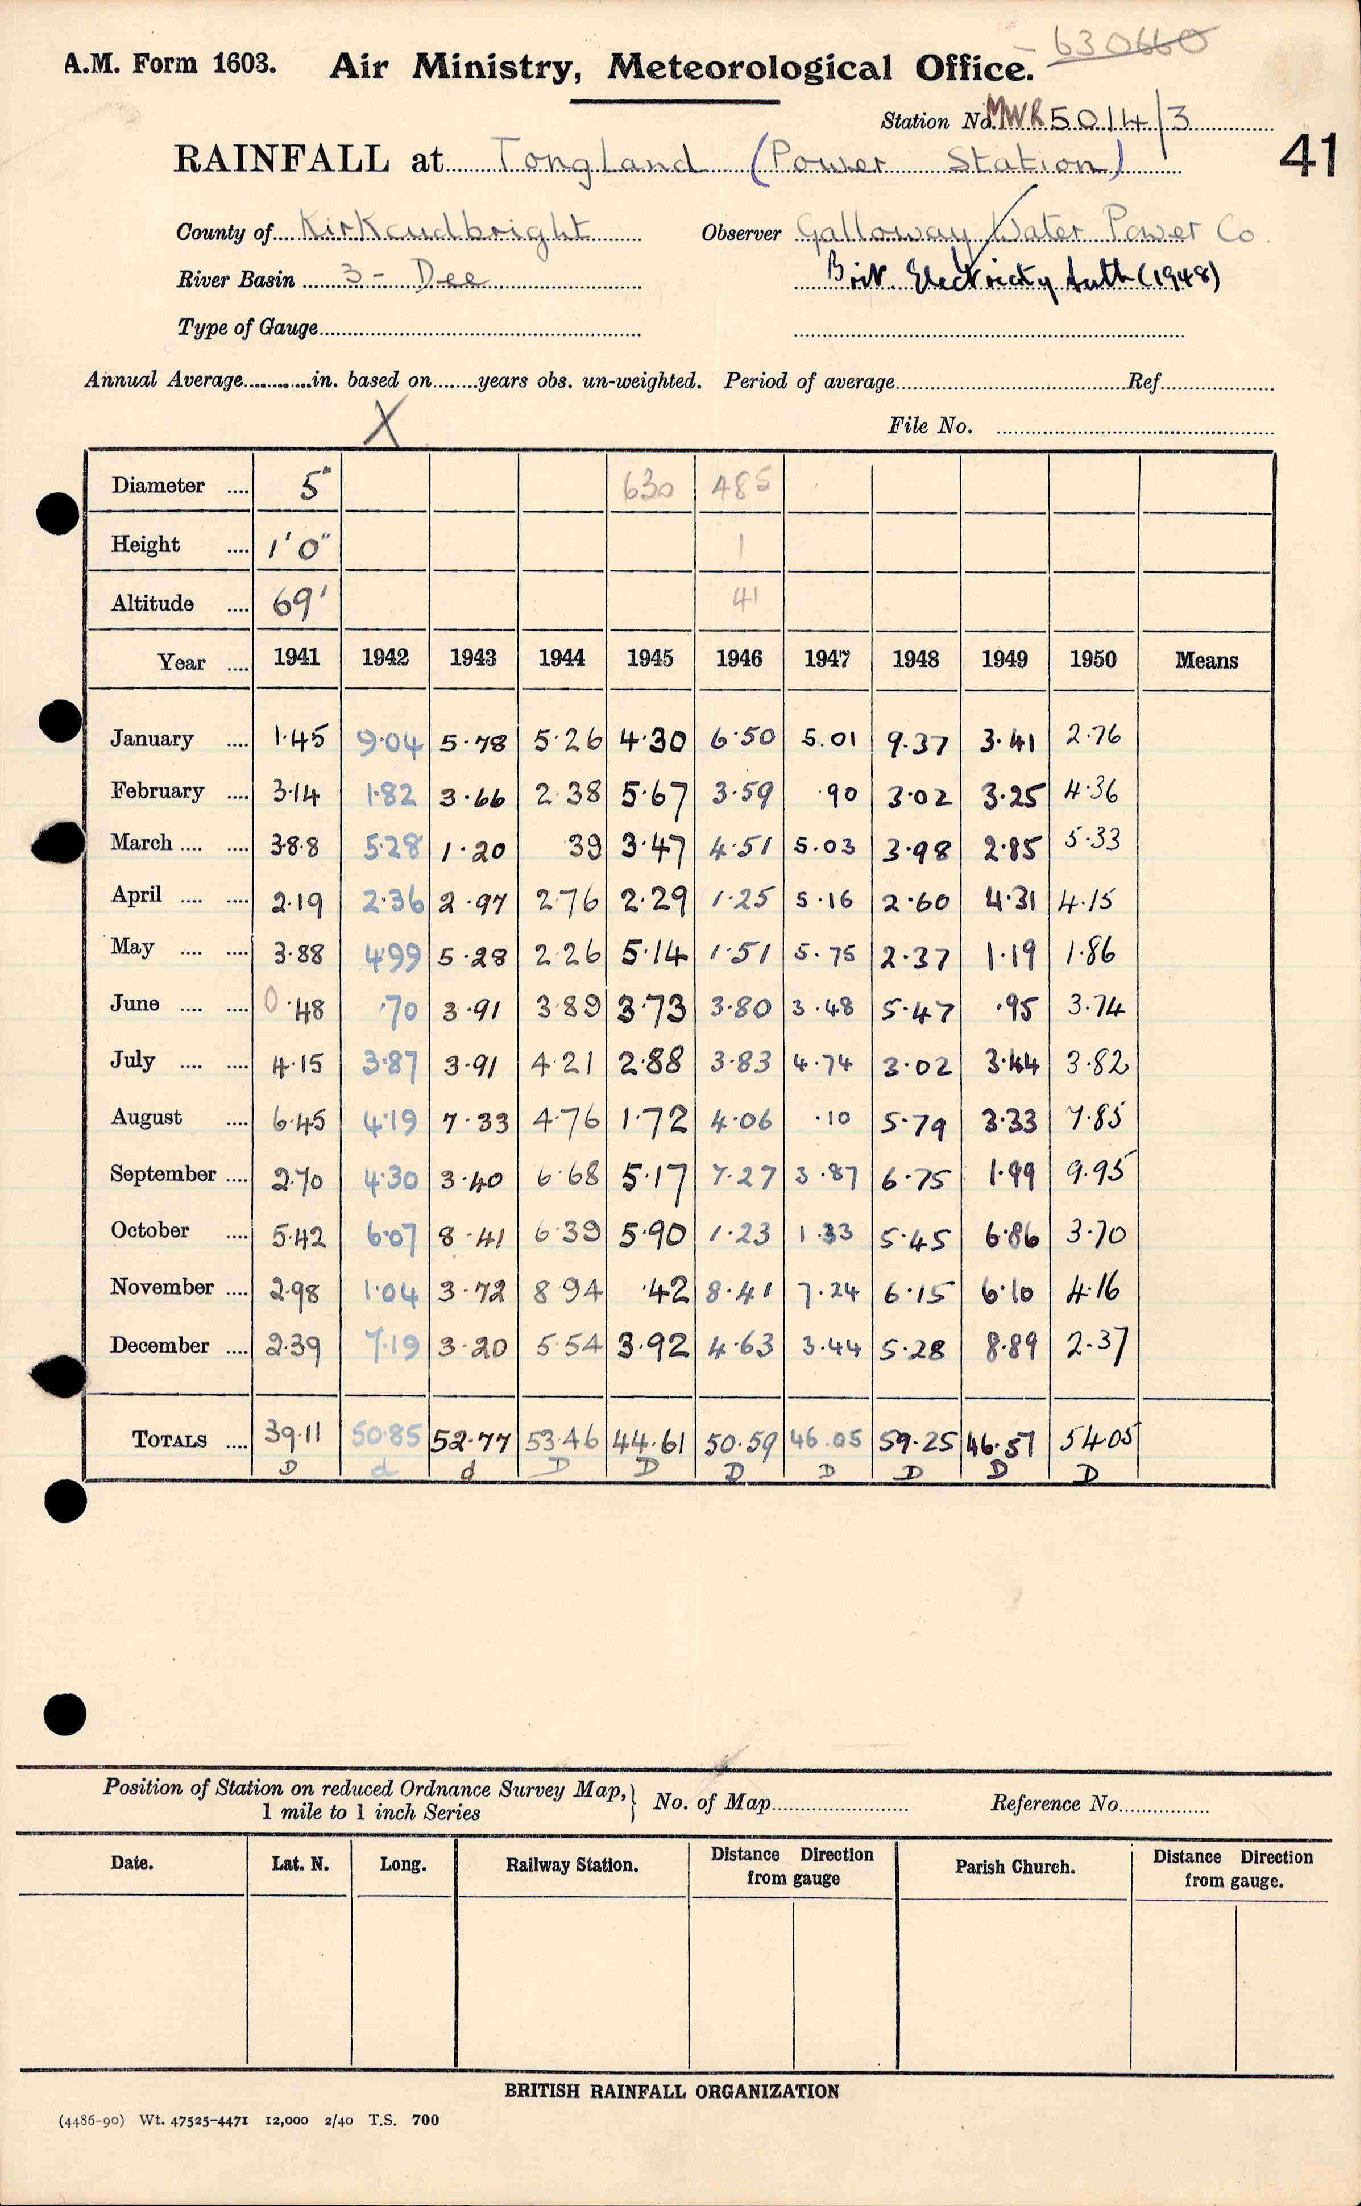 630660
A.M. Form 1603. Air Ministry, Meteorological Office.
Station No. MWR 5014/3
RAINFALL at Tongland (Power Station) 41
County of Kirkcudbright Observer Galloway Water Power Co.
River Basin 3 - Dee Brit. Electricity Auth (1948)
Type of Gauge
Annual Average in. based on years obs. un-weighted. Period of average Ref
X
File No.
Diameter .... 5" 630 485
Height .... 1' 0" 1
Altitude .... 69' 41
Year .... 1941 1942 1943 1944 1945 1946 1947 1948 1949 1950 Means
January .... 1.45 9.04 5.78 5.26 4.30 6.50 5.01 9.37 3.41 2.76
February .... 3.14 1.82 3.66 2.38 5.67 3.59 .90 3.02 3.25 4.36
March .... .... 3.88 5.28 1.20 39 3.47 4.51 5.03 3.98 2.85 5.33
April .... .... 2.19 2.36 2.97 2.76 2.29 1.25 5.16 2.60 4.31 4.15
May .... .... 3.88 4.99 5.28 2.26 5.14 1.51 5.75 2.37 1.19 1.86
June .... .... 0.48 .70 3.91 3.89 3.73 3.80 3.48 5.47 .95 3.74
July .... .... 4.15 3.87 3.91 4.21 2.88 3.83 4.74 3.02 3.44 3.82
August .... 6.45 4.19 7.33 4.76 1.72 4.06 .10 5.79 3.33 7.85
September .... 2.70 4.30 3.40 6.68 5.17 7.27 3.87 6.75 1.99 9.95
October .... 5.42 6.07 8.41 6.39 5.90 1.23 1.33 5.45 6.86 3.70
November .... 2.98 1.04 3.72 8.94 .42 8.41 7.24 6.15 6.10 4.16
December .... 2.39 7.19 3.20 5.54 3.92 4.63 3.44 5.28 8.89 2.37
TOTALS .... 39.11 50.85 52.77 53.46 44.61 50.59 46.05 59.25 46.57 54.05
D d d D D D D D D D
Position of Station on reduced Ordnance Survey Map, 1 mile to 1 inch Series } No. of Map Reference No.
Date. Lat. N. Long. Railway Station. Distance Direction from gauge Parish Church. Distance Direction from gauge.
BRITISH RAINFALL ORGANIZATION
(4486-90) Wt. 47525-4471 12,000 2/40 T.S. 700